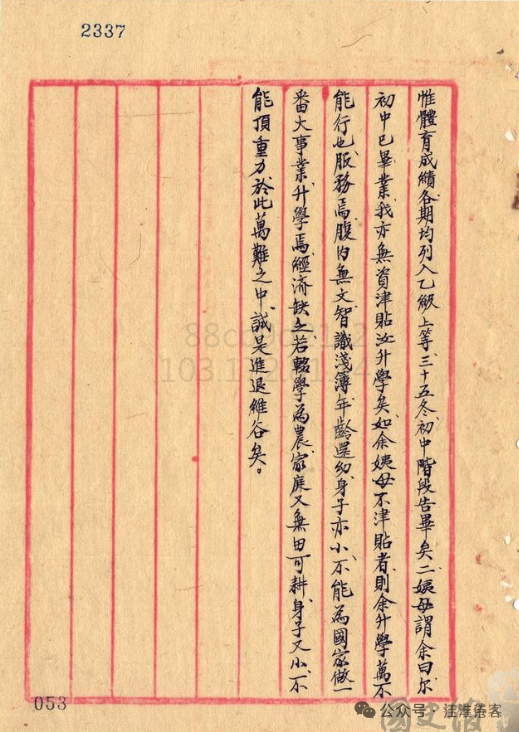 2337
惟體育成績各期均列入乙級上等三十五冬初中階段告畢矣二姨母謂余曰尔
初中已畢業我亦無資津貼汝升學矣如余姨母不津貼者則余升學萬不
能行也服務焉腹内無文智識淺簿年齡還幼身子亦小不能為國家做一
番大事業升學焉經济缺乏若輟學為農家庭又無田可耕身子又小不
能頂重力於此萬難之中誠是進退維谷矣。
053
公众号·洼淮倦客